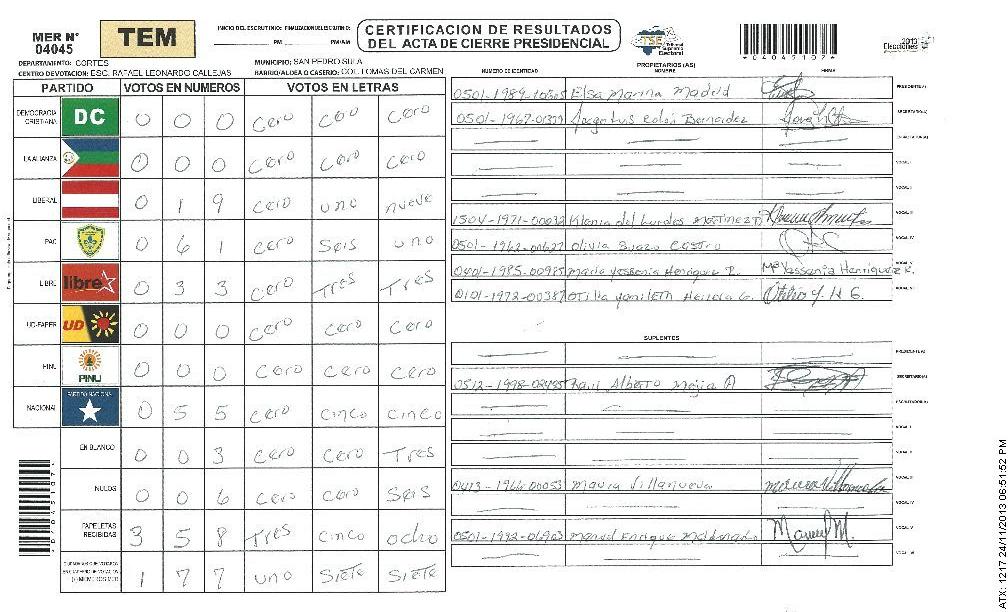 MER N° 04045
TEM
INICIO DEL ESCRUTINIO: FINALIZACION DEL ESCRUTINIO:
PM PM/AM
CERTIFICACION DE RESULTADOS
DEL ACTA DE CIERRE PRESIDENCIAL
TSE Tribunal Supremo Electoral
Elecciones 2013
DEPARTAMENTO: CORTES
MUNICIPIO: SAN PEDRO SULA
CENTRO DE VOTACION: ESC. RAFAEL LEONARDO CALLEJAS
BARRIO/ALDEA O CASERIO: COL. LOMAS DEL CARMEN
PARTIDO VOTOS EN NUMEROS VOTOS EN LETRAS
DEMOCRACIA CRISTIANA DC 0 0 0 cero cero cero
LA ALIANZA 0 0 0 cero cero cero
LIBERAL 0 1 9 cero uno nueve
PAC 0 6 1 cero seis uno
LIBRE libre 0 3 3 cero Tres Tres
UD-FAPER UD 0 0 0 cero cero cero
PINU PINU 0 0 0 cero cero cero
NACIONAL PARTIDO NACIONAL 0 5 5 cero cinco cinco
EN BLANCO 0 0 3 cero cero Tres
NULOS 0 0 6 cero cero Seis
PAPELETAS RECIBIDAS 3 5 8 Tres cinco ocho
1 7 7 uno Siete Siete
PROPIETARIOS (AS)
NUMERO DE IDENTIDAD NOMBRE FIRMA
Elsa Marina Madrid PRESIDENTE(A)
0501-1967-01379 Bernardez SECRETARIO(A)
ESCRUTADOR(A)
VOCAL I
VOCAL II
1504-1971-00032 del Lurdes Martinez VOCAL III
0501-1962-00627 Olivia Castro VOCAL IV
0401-1985-00985 Maria Yessenia Henriquez R. Mª Yessenia Henriquez R. VOCAL V
0101-1972-00387 Otilia Yamileth Herrera G. Otilia Y. H G.
SUPLENTES
PRESIDENTE(A)
0512-1998- Raul Alberto Mejia A SECRETARIO(A)
ESCRUTADOR(A)
VOCAL I
VOCAL II
0413-1966-00053 Maura Villanueva VOCAL III
VOCAL IV
0501-1992- Manuel Enrique Maldonado Manuel M. VOCAL V
ATX: 1217 24/11/2013 06:51:52 PM